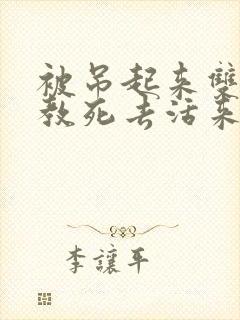 被吊起来雙
教死去活来
李讓平